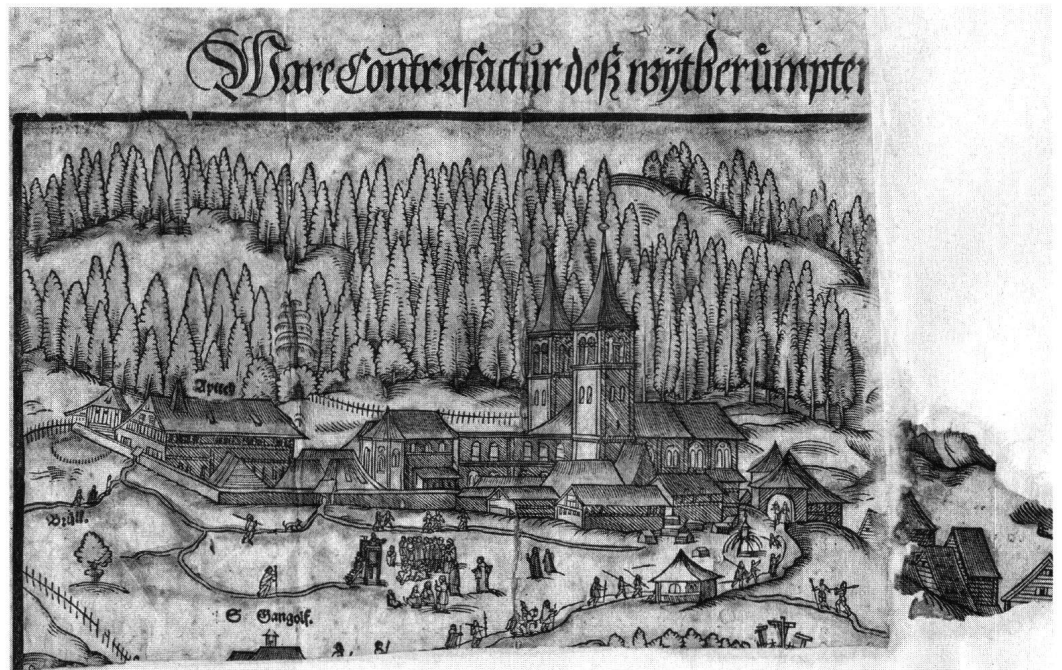 Ware Contrafactur deß wytberůmpten
Brüll.
S Gangolf.